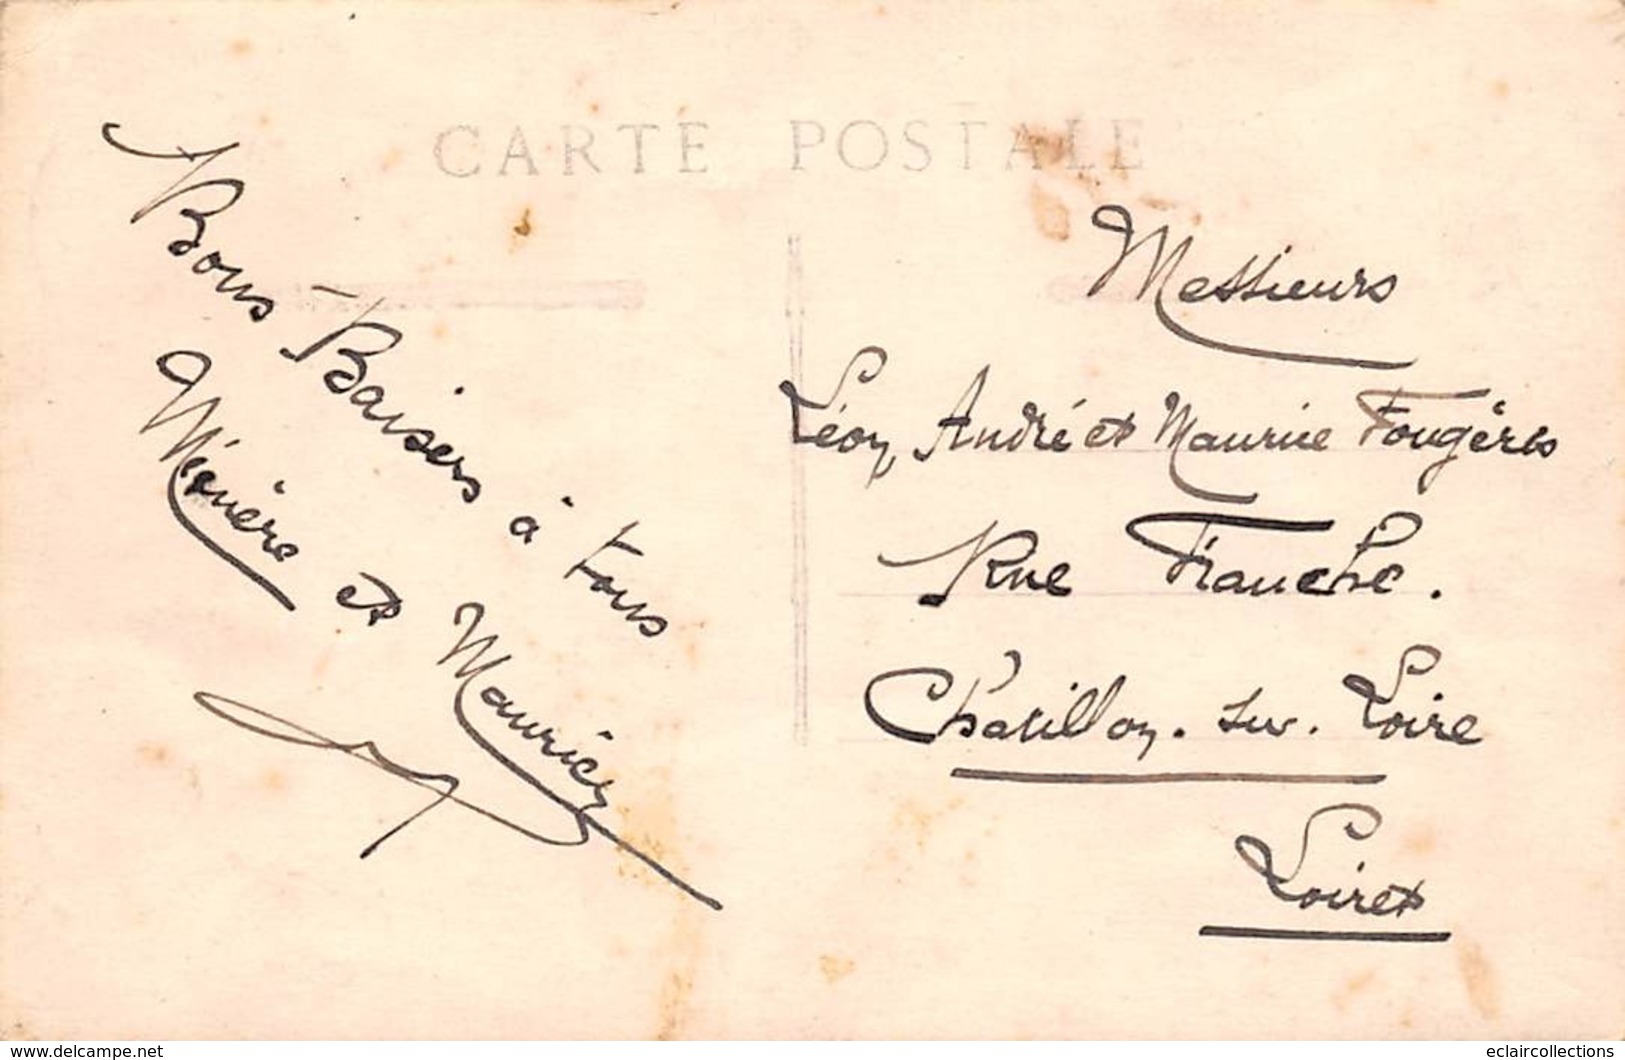 CARTE POSTALE
Bons Baisers à tous
et Maurice
Messieurs
Léon, André et Maurice Fougères
Rue Franche.
Chatillon. sur. Loire
Loiret
www.delcampe.net
eclaircollections